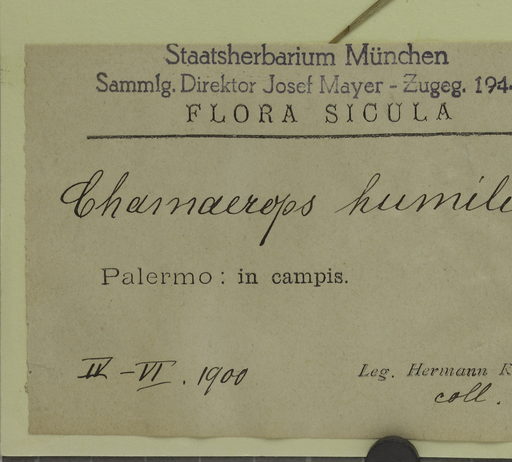 Staatsherbarium München
Sammlg. Direktor Josef Mayer - Zugeg. 194
FLORA SICULA
Chamaerops
Palermo: in campis.
IV - VI . 1900
Leg. Hermann
coll.